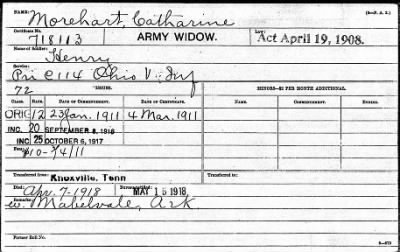 NAME: Morehart, Catharine (3—P. A. S.)
Certificate No. 718113 ARMY WIDOW. Law: Act April 19, 1908.
Name of Soldier: Henry
Service: Pri C 114 Ohio V. Inf
72 ISSUES. MINORS—$2 PER MONTH ADDITIONAL.
CLASS. RATE. DATE OF COMMENCEMENT. DATE OF CERTIFICATE. NAME. COMMENCING. ENDING.
ORIG 12 23 Jan. 1911 4 Mar. 1911
INC. 20 SEPTEMBER 8, 1916
INC. 25 OCTOBER 6, 1917
Fees: $10-3/4/11
Transferred from: Knoxville, Tenn Transferred to:
Died: Apr. 7-1918 MAY 15 1918
Remarks: W. Mabelvale, Ark
Former Roll No.